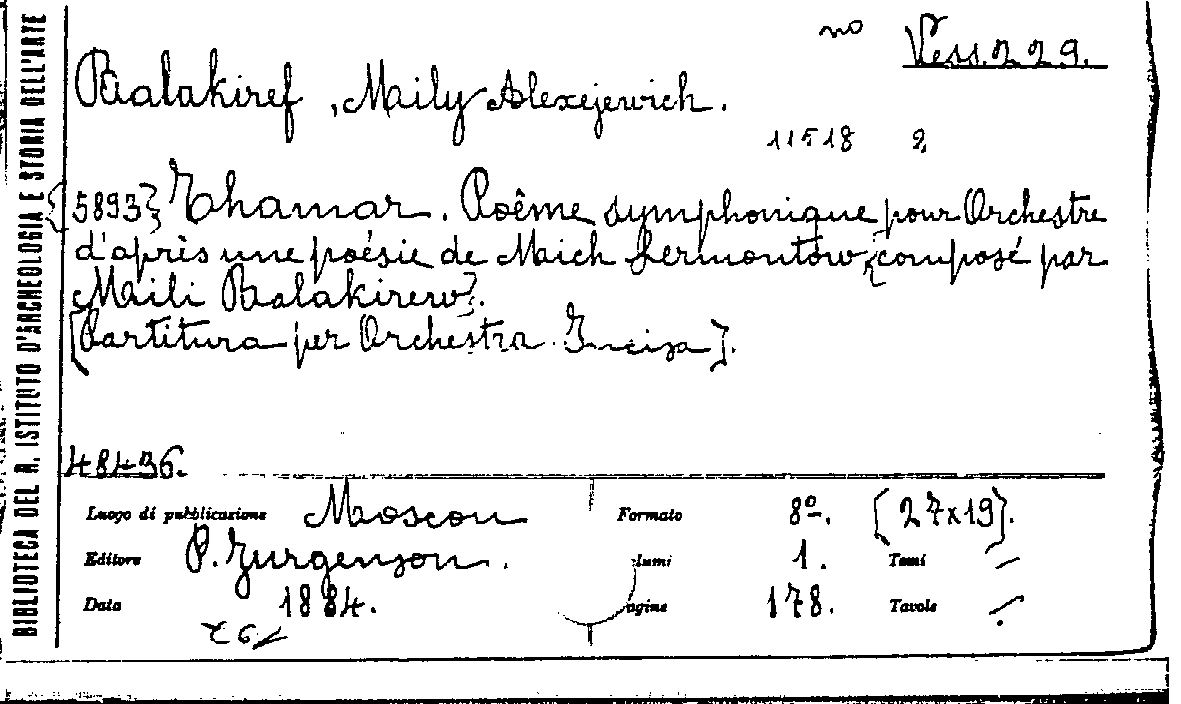 BIBLIOTECA DEL R. ISTITUTO D'ARCHEOLOGIA E STORIA DELL'ARTE
no Vess. 229.
Balakiref, Maily Alexejewich.
11518 2
[5893] Thamar. Poême symphonique pour Orchestre
d'après une poésie de Mich Lermontow [composé par
Maili Balakirew].
[Partitura per Orchestra. Incisa].
48436.
Luogo di pubblicazione Moscou
Formato 8º. [27x19].
Editore P. Jurgenson.
lumi 1. Tomi /
Data 1884.
agine 178. Tavole /.